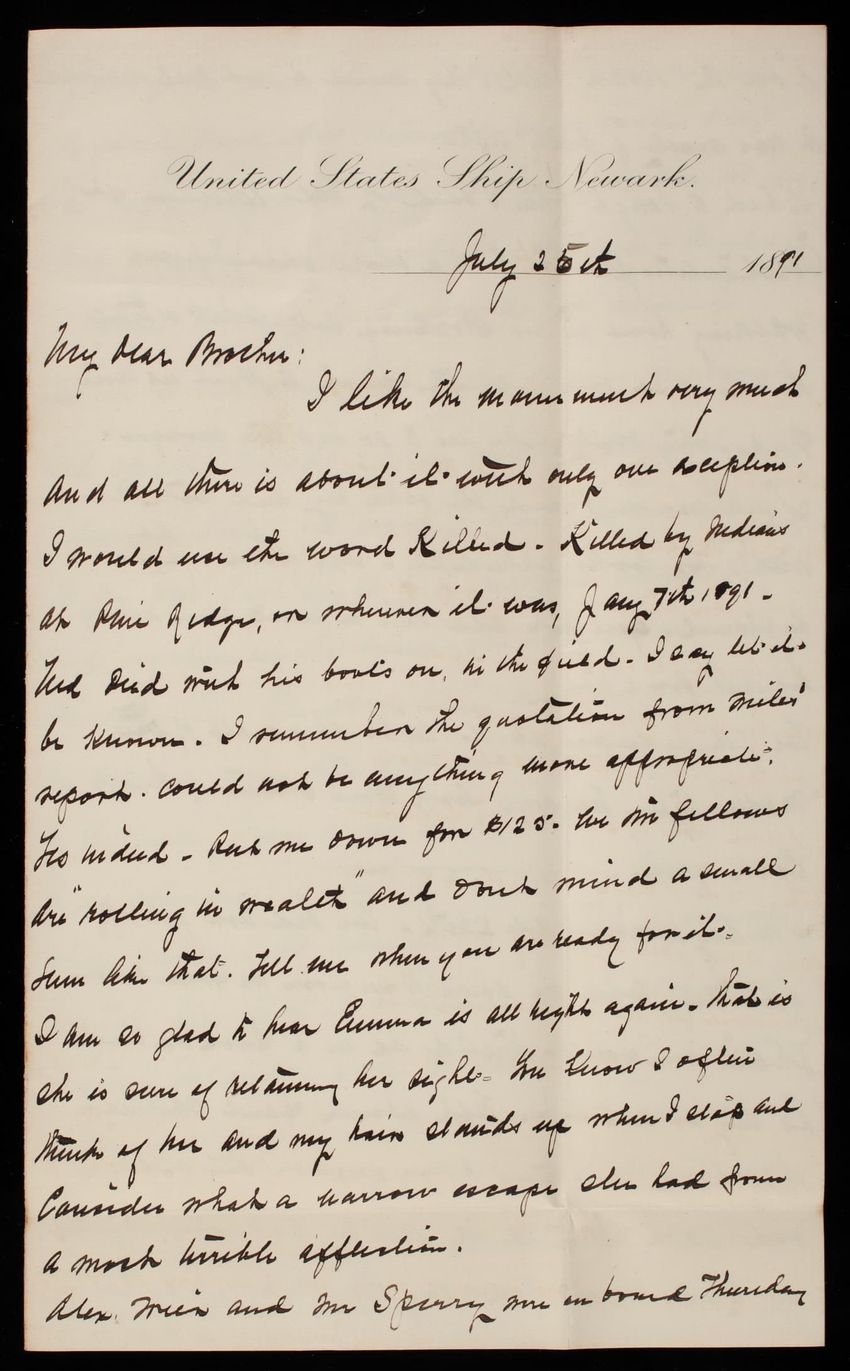 United States Ship Newark.
July 25th 1891
My dear Brother:
I like the monument very much
and all there is about it with only one exception.
I would use the word Killed - Killed by Indians
at Pine Ridge, or wherever it was, Jany 7th 1891 -
Ned died with his boots on, in the field - I say let it
be known. I remember the quotation from Miles'
report. could not be anything more appropriate.
Yes indeed - Put me down for $125. We fellows
are "rolling in wealth" and dont mind a small
sum like that. Tell me when you are ready for it.
I am so glad to hear Emma is all right again - that is
she is sure of retaining her sight - You Know I often
think of her and my hair stands up when I stop and
Consider what a narrow escape she had from
a most terrible affliction.
Alex. and Mr Sperry were on board Thursday